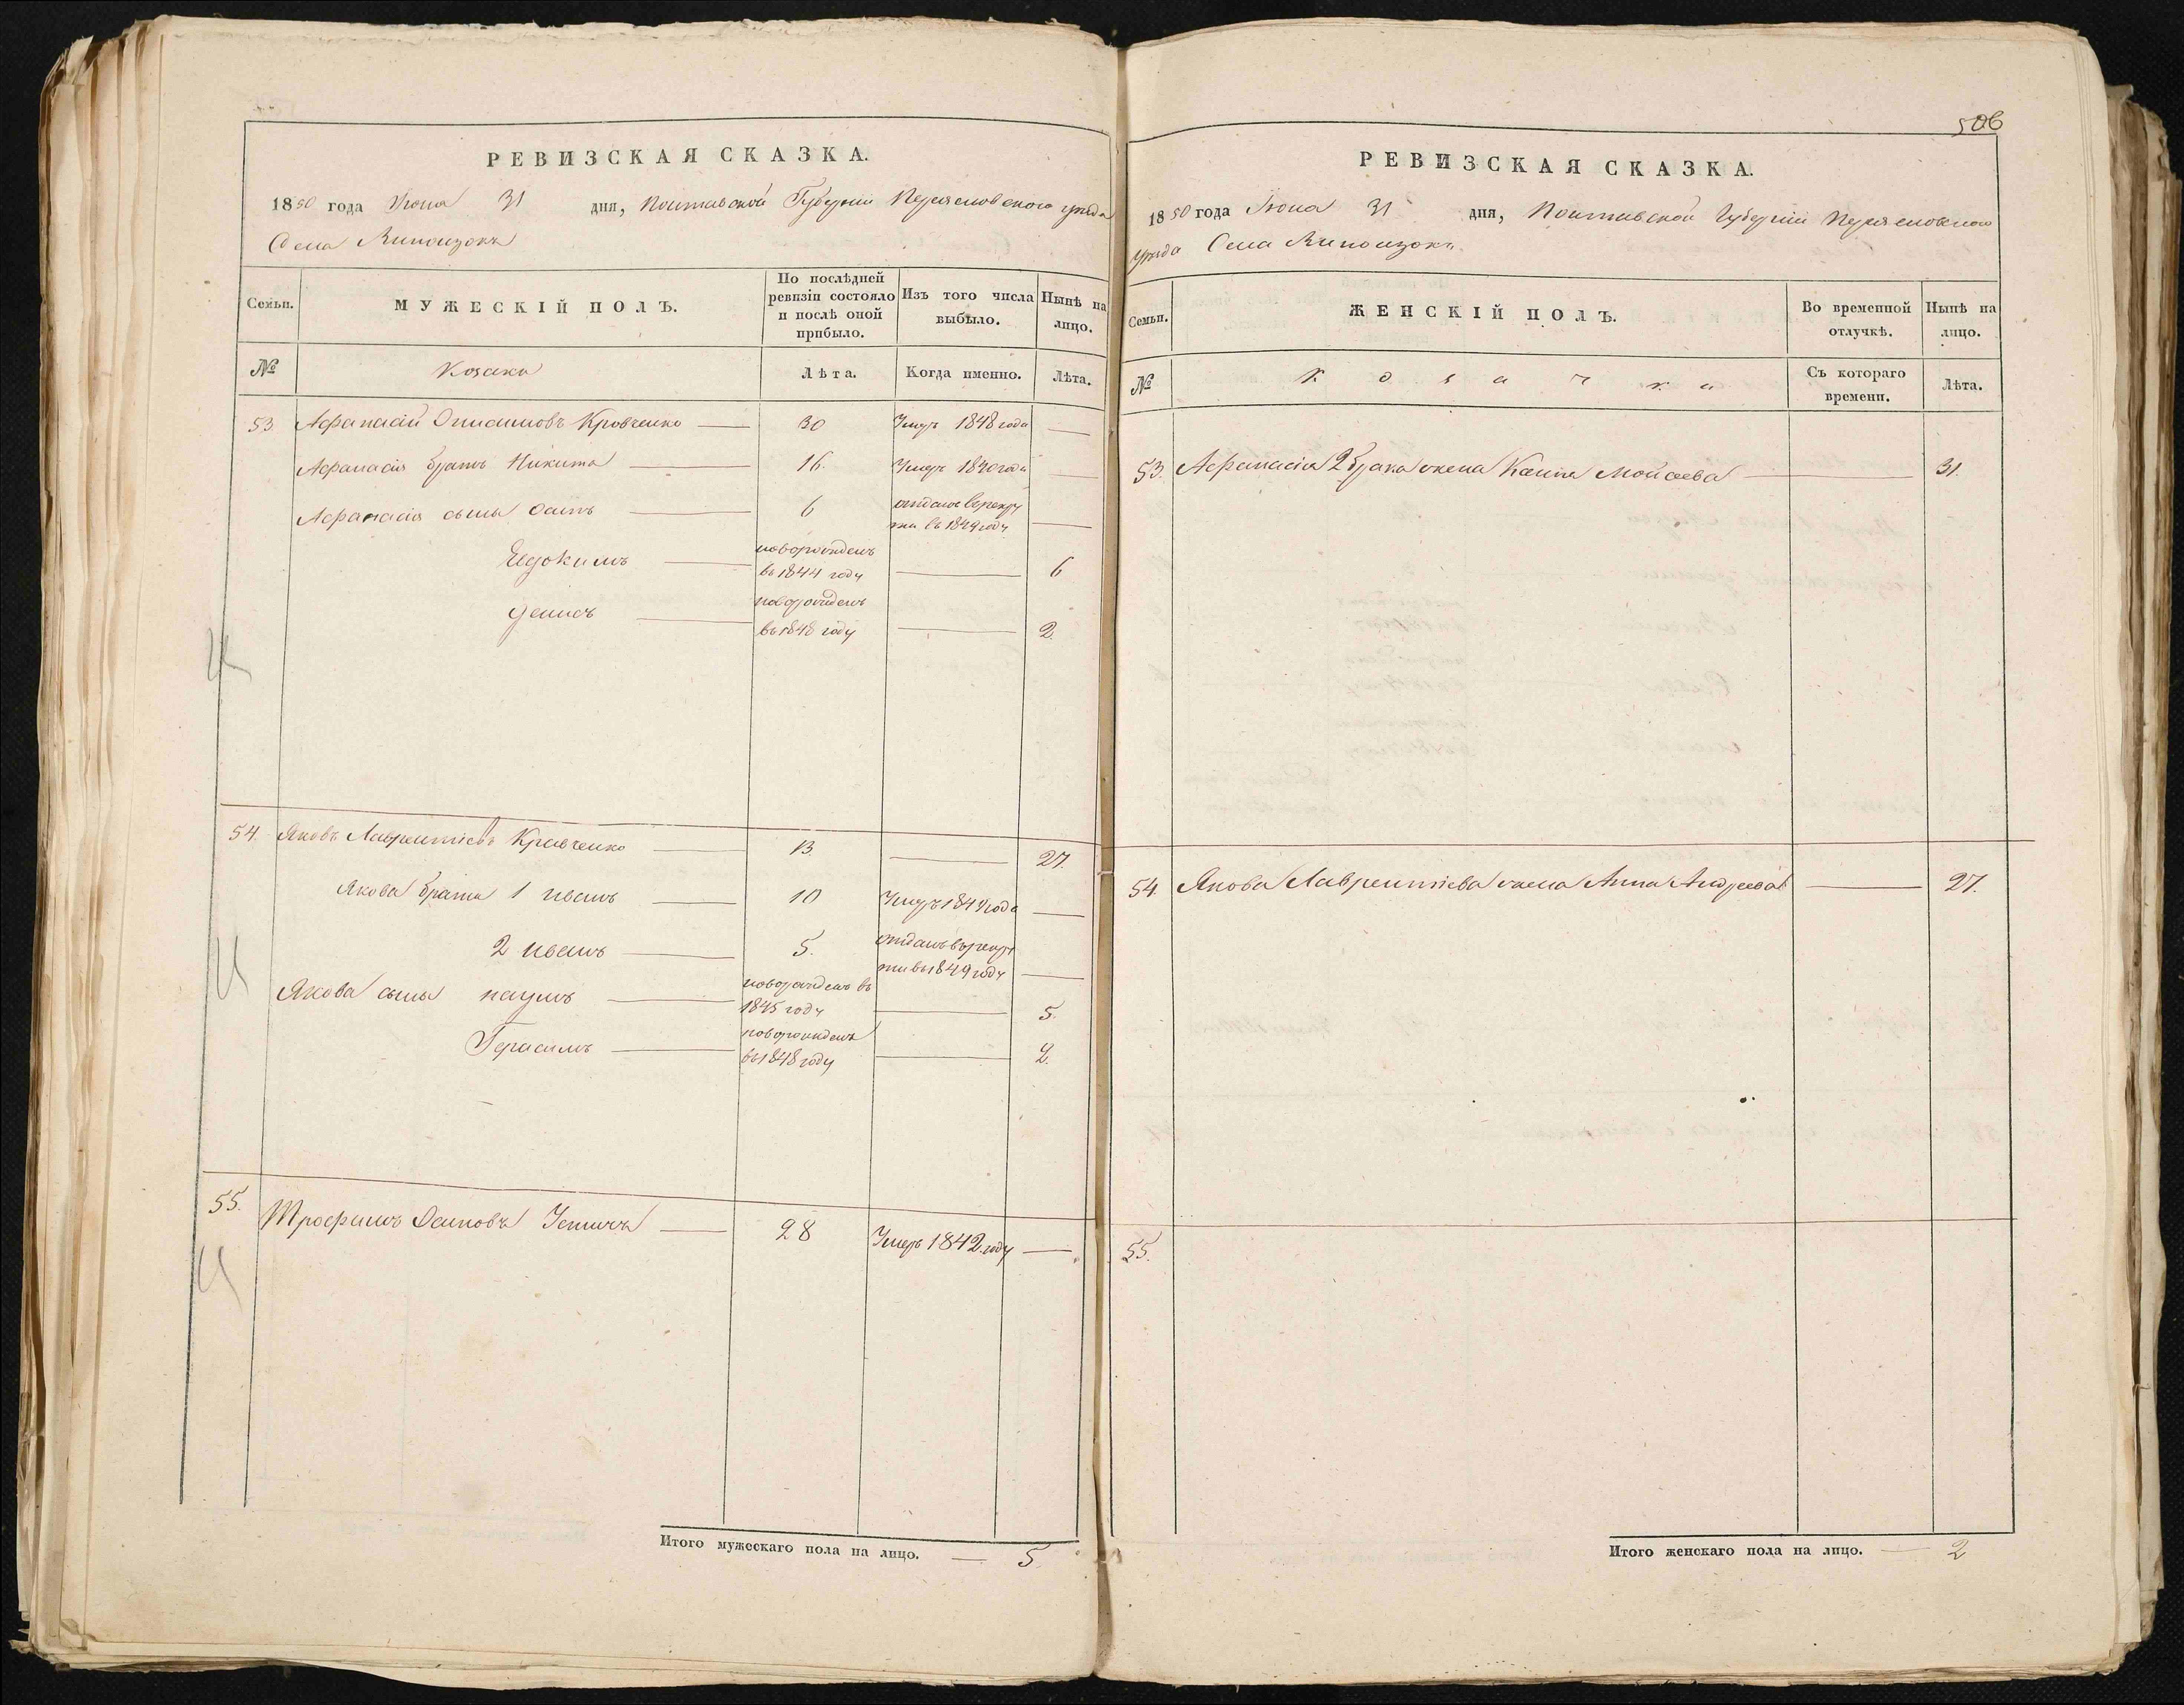 РЕВИЗСКАЯ СКАЗКА.
1850 года Іюна 31 дня, Полтавской Губерніи Переясловского уезда
Села
Семьи.
МУЖЕСКІЙ ПОЛЪ.
По послѣдней ревизіи состояло и послѣ оной прибыло.
Изъ того числа выбыло.
Нынѣ на лицо.
№
Козаки
Лѣта.
Когда именно.
Лѣта.
53. Афанасій Кровченко — 30 Умеръ 1848 года —
Афанасія братъ Никита — 16. Умеръ 1840 года —
Афанасія сыны Осипъ — 6 отданъ в рекру
ты въ 1849 году —
Евдокимъ — новорожденъ
въ 1844 году — 6
Денисъ — новорожденъ
въ 1848 году — 2.
54. Яковъ Лаврентіевъ Кравченко — 13. — 27.
Якова братья 1 иванъ — 10 Умеръ 1849 года —
2 иванъ — 5. отданъ в рекру
ты въ 1849 году —
Якова сыны наумъ — новорожденъ въ
1845 году — 5.
Герасимъ — новорожденъ
въ 1848 году — 2.
55. Трофимъ Осиповъ — 28 Умеръ 1842 году —
Итого мужескаго пола на лицо. — 5
506
РЕВИЗСКАЯ СКАЗКА.
1850 года Іюна 31 дня, Полтавской Губерніи Переясловского
уезда Села
Семьи.
ЖЕНСКІЙ ПОЛЪ.
Во временной отлучкѣ.
Нынѣ на лицо.
№
Козачки
Съ котораго времени.
Лѣта.
53. Афанасія 2 брака жена Мойсеева — 31.
54. Якова Лаврентіева жена Анна Андреева — 27.
55.
Итого женскаго пола на лицо. — 2